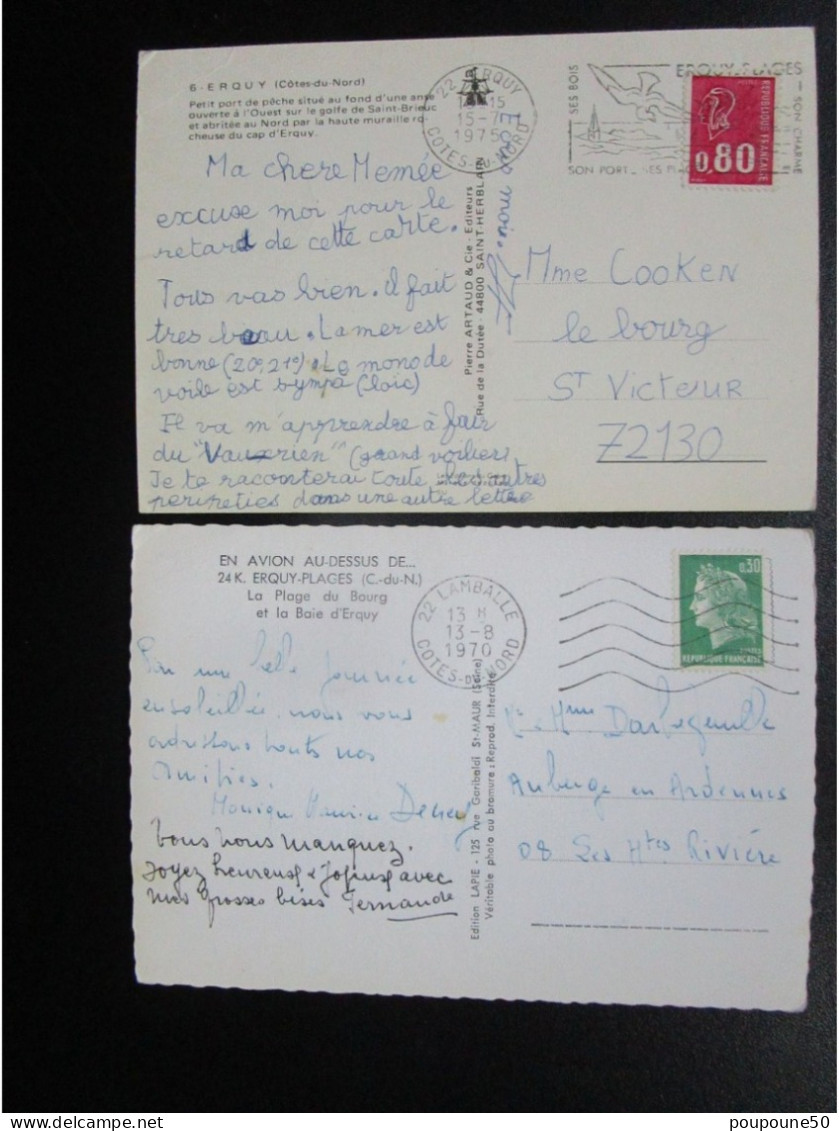 6 - ERQUY (Côtes-du-Nord)
Petit port de pêche situé au fond d'une anse
ouverte à l'Ouest sur le golfe de Saint-Brieuc
et abritée au Nord par la haute muraille ro-
cheuse du cap d'Erquy.
22 ERQUY
15-7
1975
COTES-DU-NORD
SES BOIS
ERQUY-PLAGES
SON CHARME
SON PORT - SES
0,80
REPUBLIQUE FRANCAISE
Ma chere Memée
excuse moi pour le
retard de cette carte.
Tous vas bien. il fait
tres beau. La mer est
bonne (20°, 21°). Le mono de
voile est sympa (loic)
Il va m'apprendre à fair
du "Vaurien" (grand voilier)
Je te raconterai toute les autres
peripeties dans une autre lettre
Ecris moi.
Pierre ARTAUD & Cie - Editeurs
Rue de la Dutée - 44800 SAINT-HERBLAIN
Mme COOKEN
le bourg
ST VICTEUR
72130
EN AVION AU-DESSUS DE...
24 K. ERQUY-PLAGES (C.-du-N.)
La Plage du Bourg
et la Baie d'Erquy
22 LAMBALLE
13 H
13-8
1970
COTES-DU-NORD
0,30
REPUBLIQUE FRANÇAISE
Par une belle journée
ensoleillée nous vous
adressons toutes nos
Amitiés.
Monique Maurice
Vous nous manquez.
Soyez heureux & avec
mes grosses bises Fernande
Edition LAPIE - 125 rue Garibaldi St-MAUR (Seine)
Véritable photo au bromure : Reprod. Interdite
Mme
Auberge en Ardennes
08 Les Htes Rivière
poupoune50